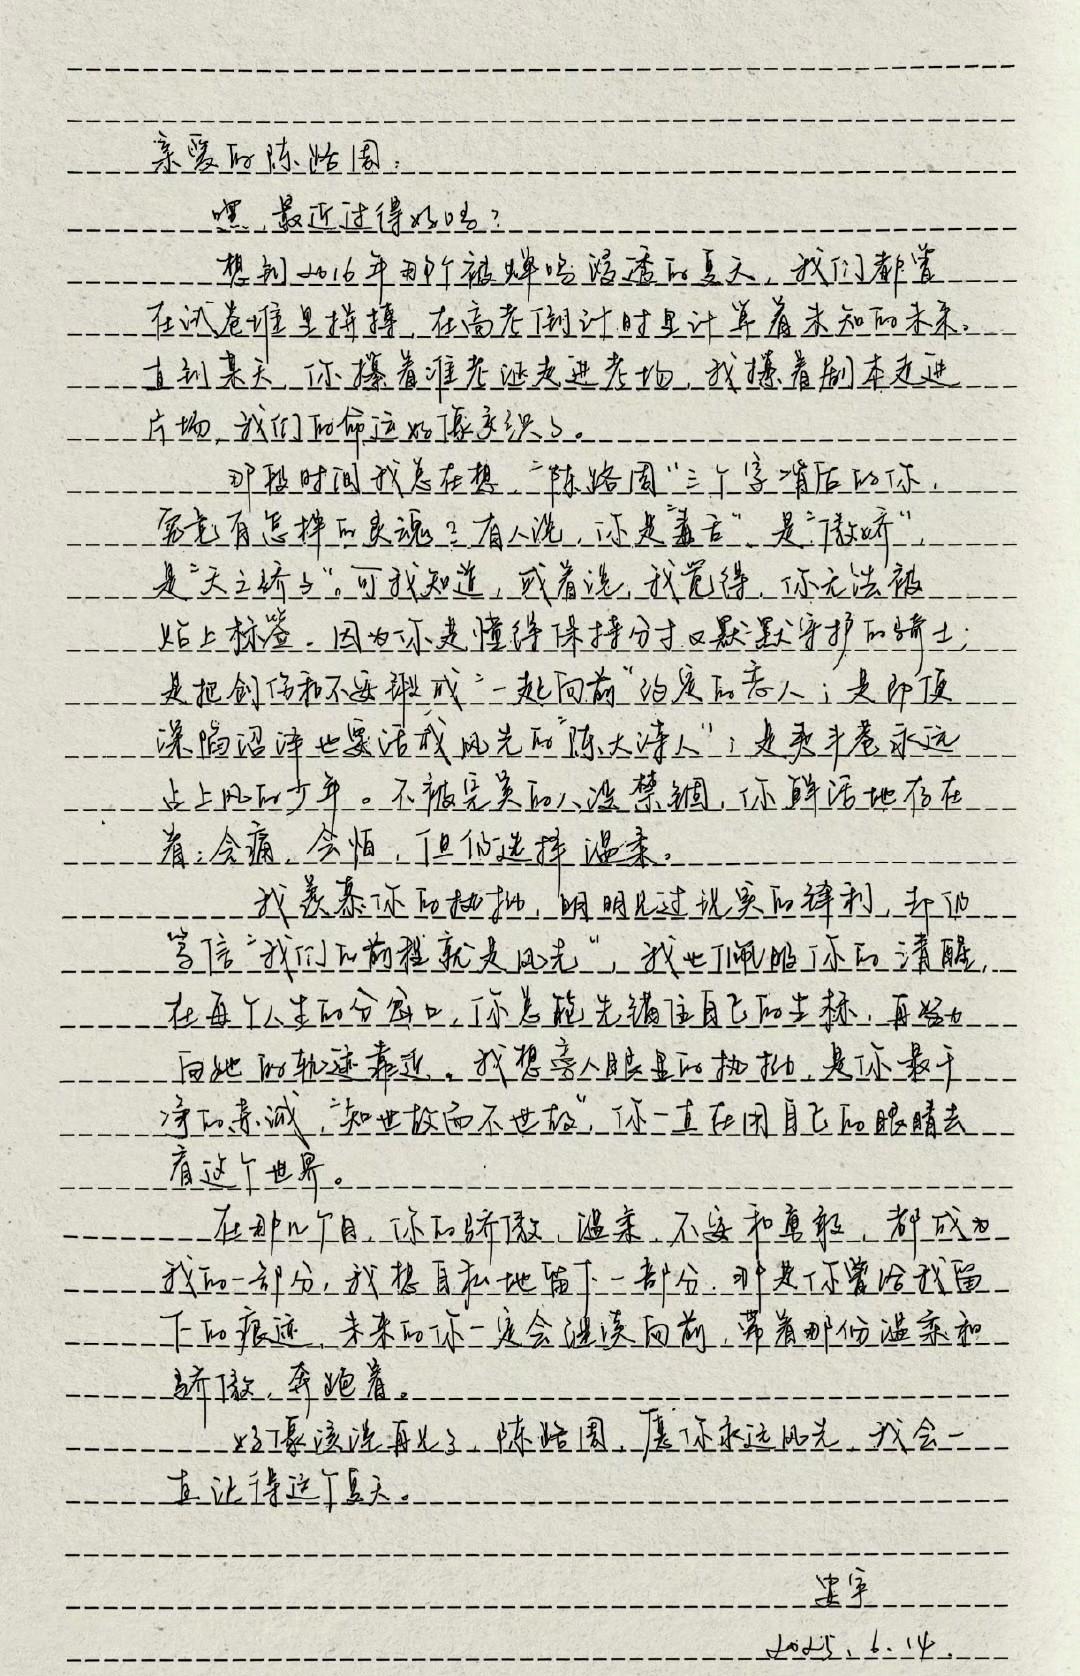 亲爱的陈路周：
嘿，最近过得好吗？
想到2016年那个被蝉鸣浸透的夏天，我们都曾
在试卷堆里拼搏，在高考倒计时里计算着未知的未来。
直到某天，你攥着准考证走进考场，我攥着剧本走进
片场，我们的命运好像交织了。
那段时间我总在想，“陈路周”三个字背后的你，
究竟有怎样的灵魂？有人说，你是“毒舌”，是“傲娇”，
是“天之骄子”。可我知道，或者说，我觉得，你无法被
贴上标签。因为你是懂得保持分寸又默默守护的骑士；
是把创伤和不安酿成“一起向前”约定的恋人；是即便
深陷沼泽也要活成风光的“陈大诗人”；是夷丰巷永远
占上风的少年。不被完美的人设禁锢，你鲜活地存在
着：会痛，会怕，但仍选择温柔。
我羡慕你的执拗，明明见过现实的锋利，却仍
笃信“我们的前程就是风光”，我也佩服你的清醒，
在每个人生的分岔口，你总能先锚住自己的坐标，再努力
向她的轨迹靠近。我想旁人眼里的执拗，是你最干
净的赤诚，“知世故而不世故”，你一直在用自己的眼睛去
看这个世界。
在那几个月，你的骄傲，温柔，不安和勇敢，都成为
我的一部分，我想自私地留下一部分，那是你曾给我留
下的痕迹，未来的你一定会继续向前，带着那份温柔和
骄傲，奔跑着。
好像该说再见了，陈路周，愿你永远风光，我会一
直记得这个夏天。
安宇
2025.6.14.